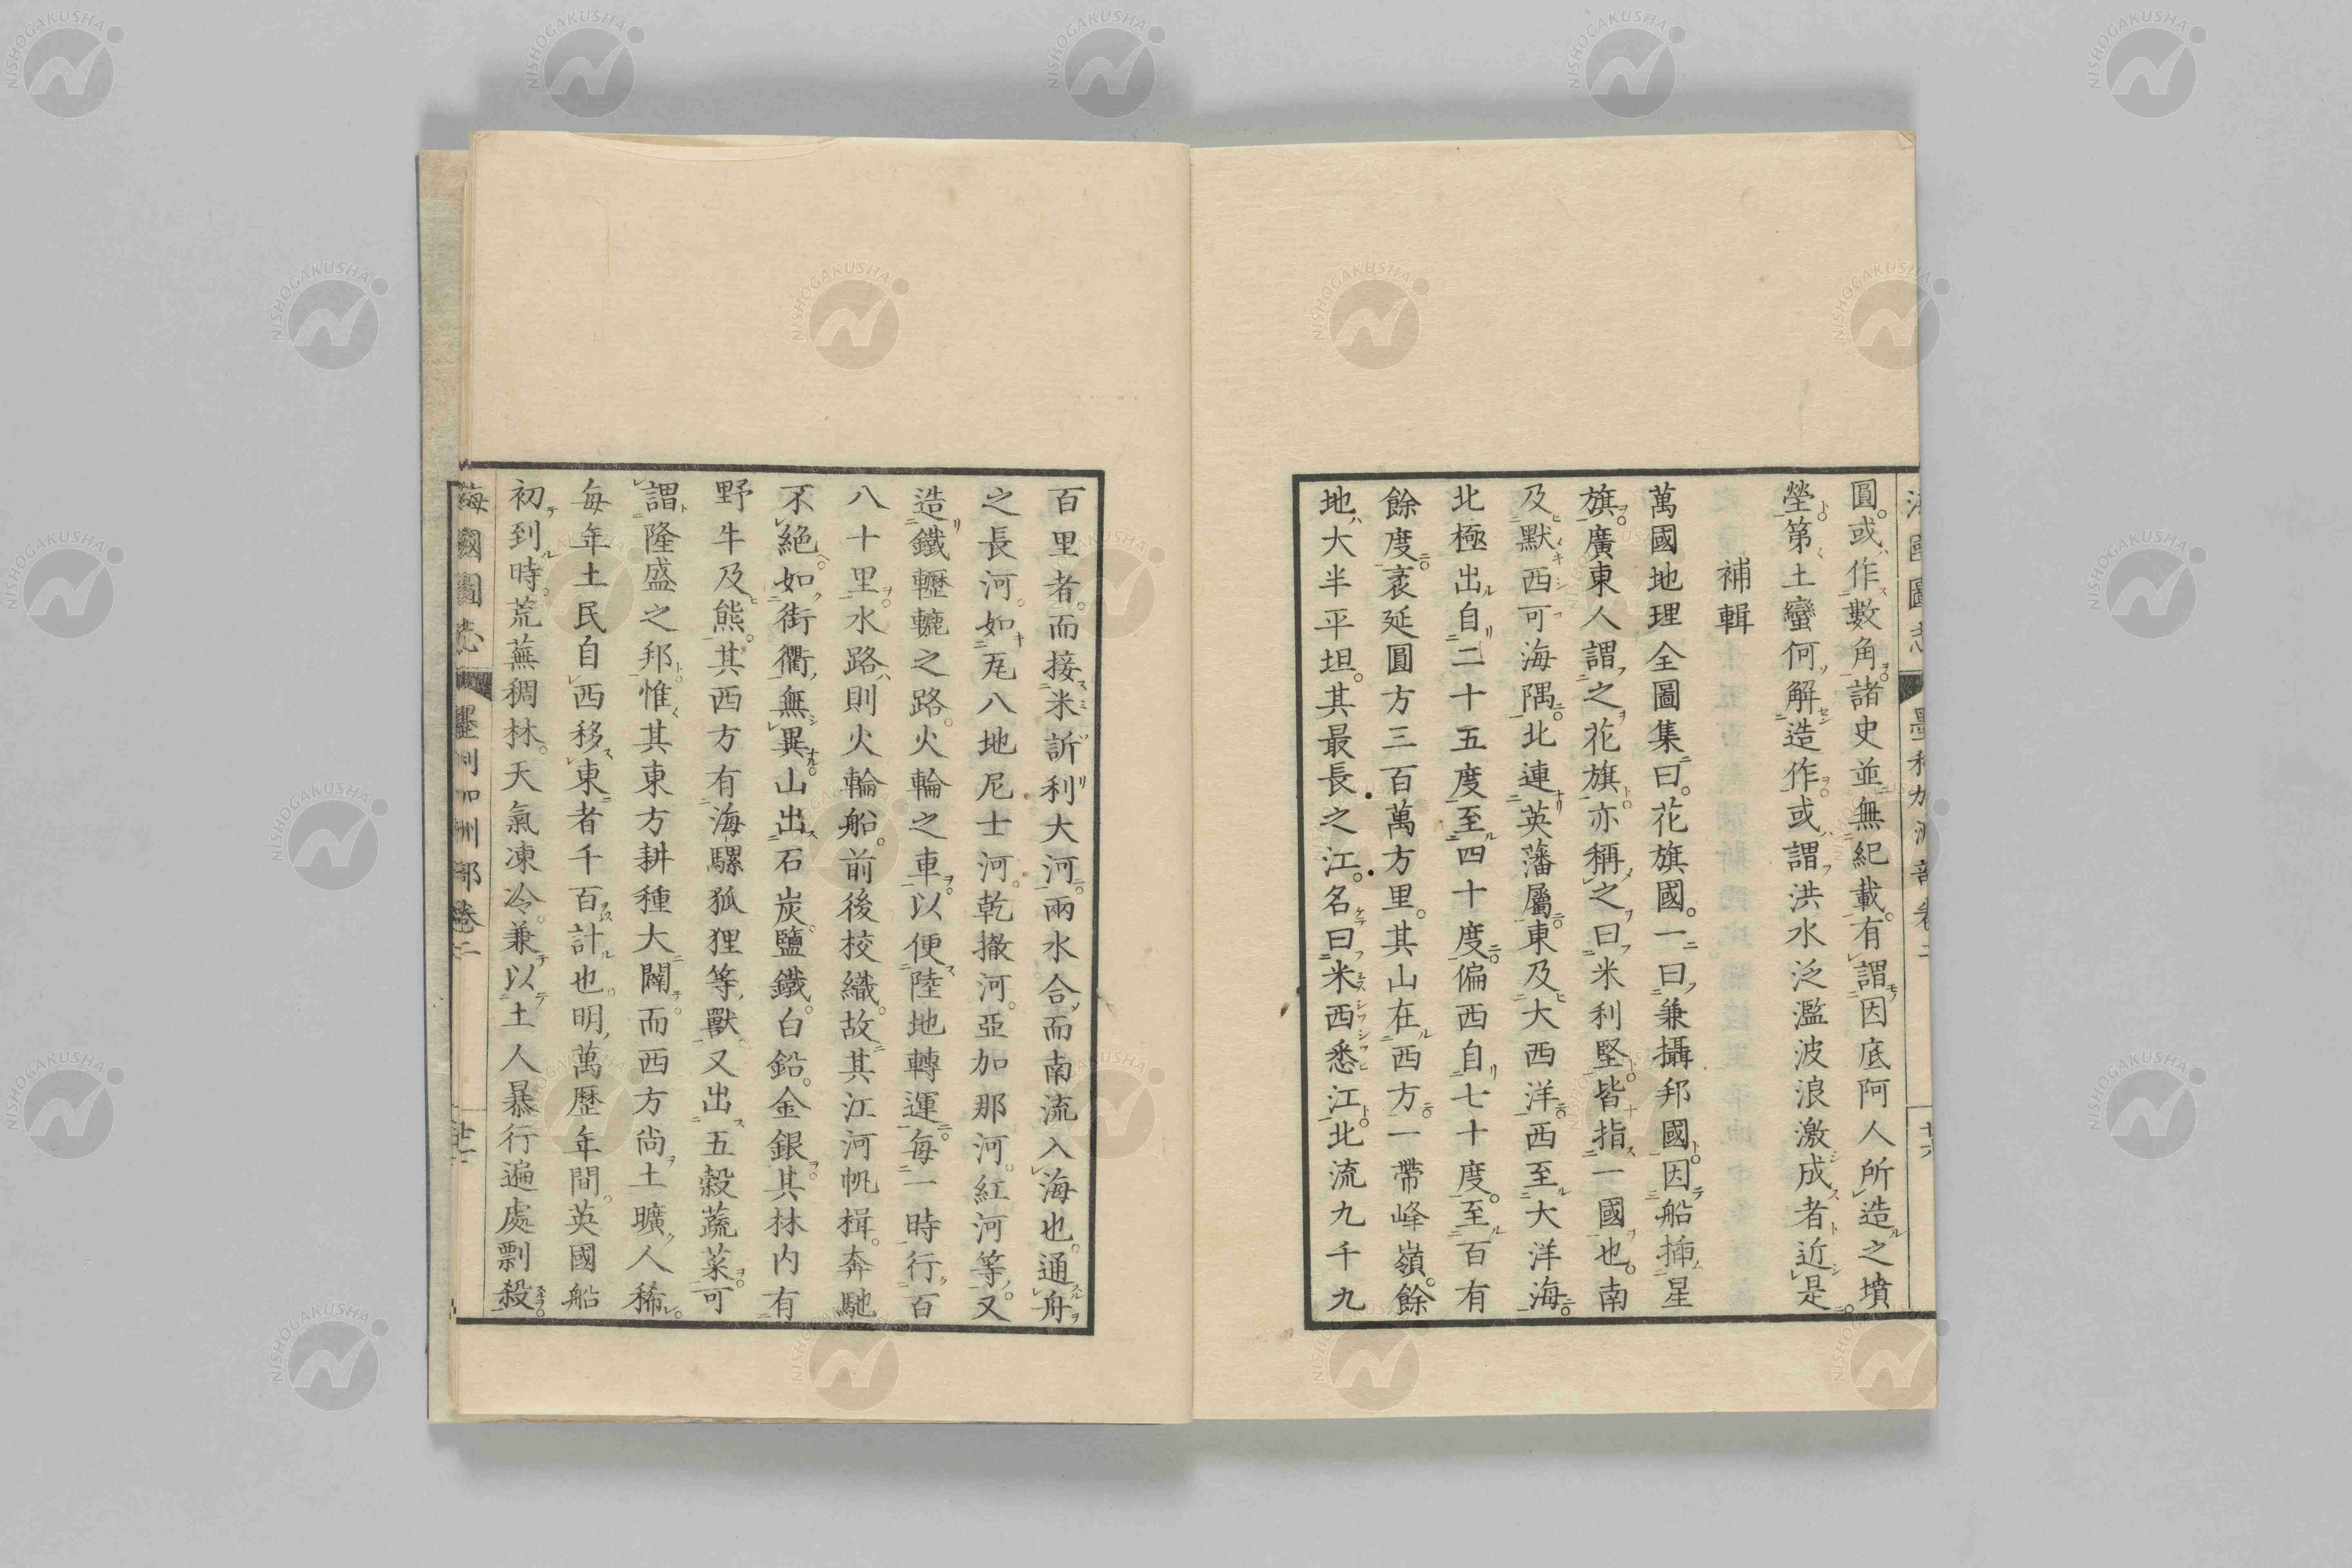 圓。或作數角。諸史並無紀載。有謂因底阿人所造之墳
塋。第土蠻何解造作。或謂洪水泛濫波浪激成者近是。
補輯
萬國地理全圖集曰。花旗國。一曰兼攝邦國。因船插星
旗。廣東人謂之花旗。亦稱之曰米利堅。皆指一國也。南
及默西可海隅。北連英藩屬。東及大西洋。西至大洋海。
北極出自二十五度至四十度。偏西自七十度。至百有
餘度。袤延圓方三百萬方里。其山在西方。一帶峰嶺。餘
地大半平坦。其最長之江。名曰米西悉江。北流九千九
百里者。而接米訢利大河。兩水合而南流入海也。通舟
之長河。如尫八地尼士河。乾撤河。亞加那河。紅河等。又
造鐵轣轆之路。火輪之車。以便陸地轉運。每一時行百
八十里。水路則火輪船。前後校織。故其江河帆楫。奔馳
不絕。如街衢無異。山出石炭。鹽鐵。白鉛。金銀。其林内有
野牛及熊。其西方有海騾狐狸等獸。又出五穀蔬菜。可
謂隆盛之邦。惟其東方耕種大闢。而西方尚土曠人稀。
每年土民自西移東者千百計也。明萬歷年間。英國船
初到時。荒蕪稠林。天氣凍冷。兼以土人暴行遍處剽殺。
海國圖志 墨利加洲部卷二